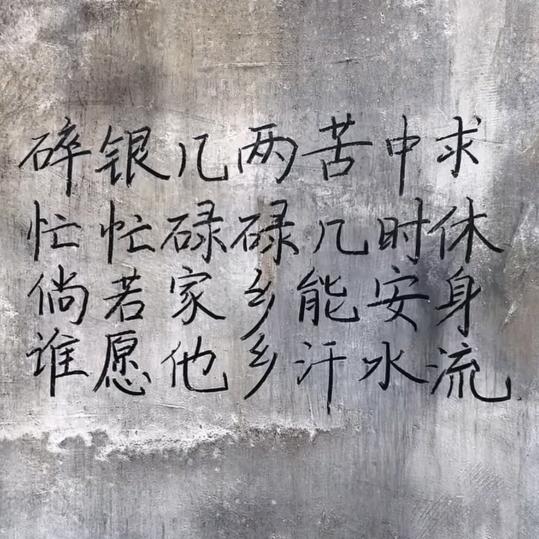 碎银几两苦中求
忙忙碌碌几时休
倘若家乡能安身
谁愿他乡汗水流